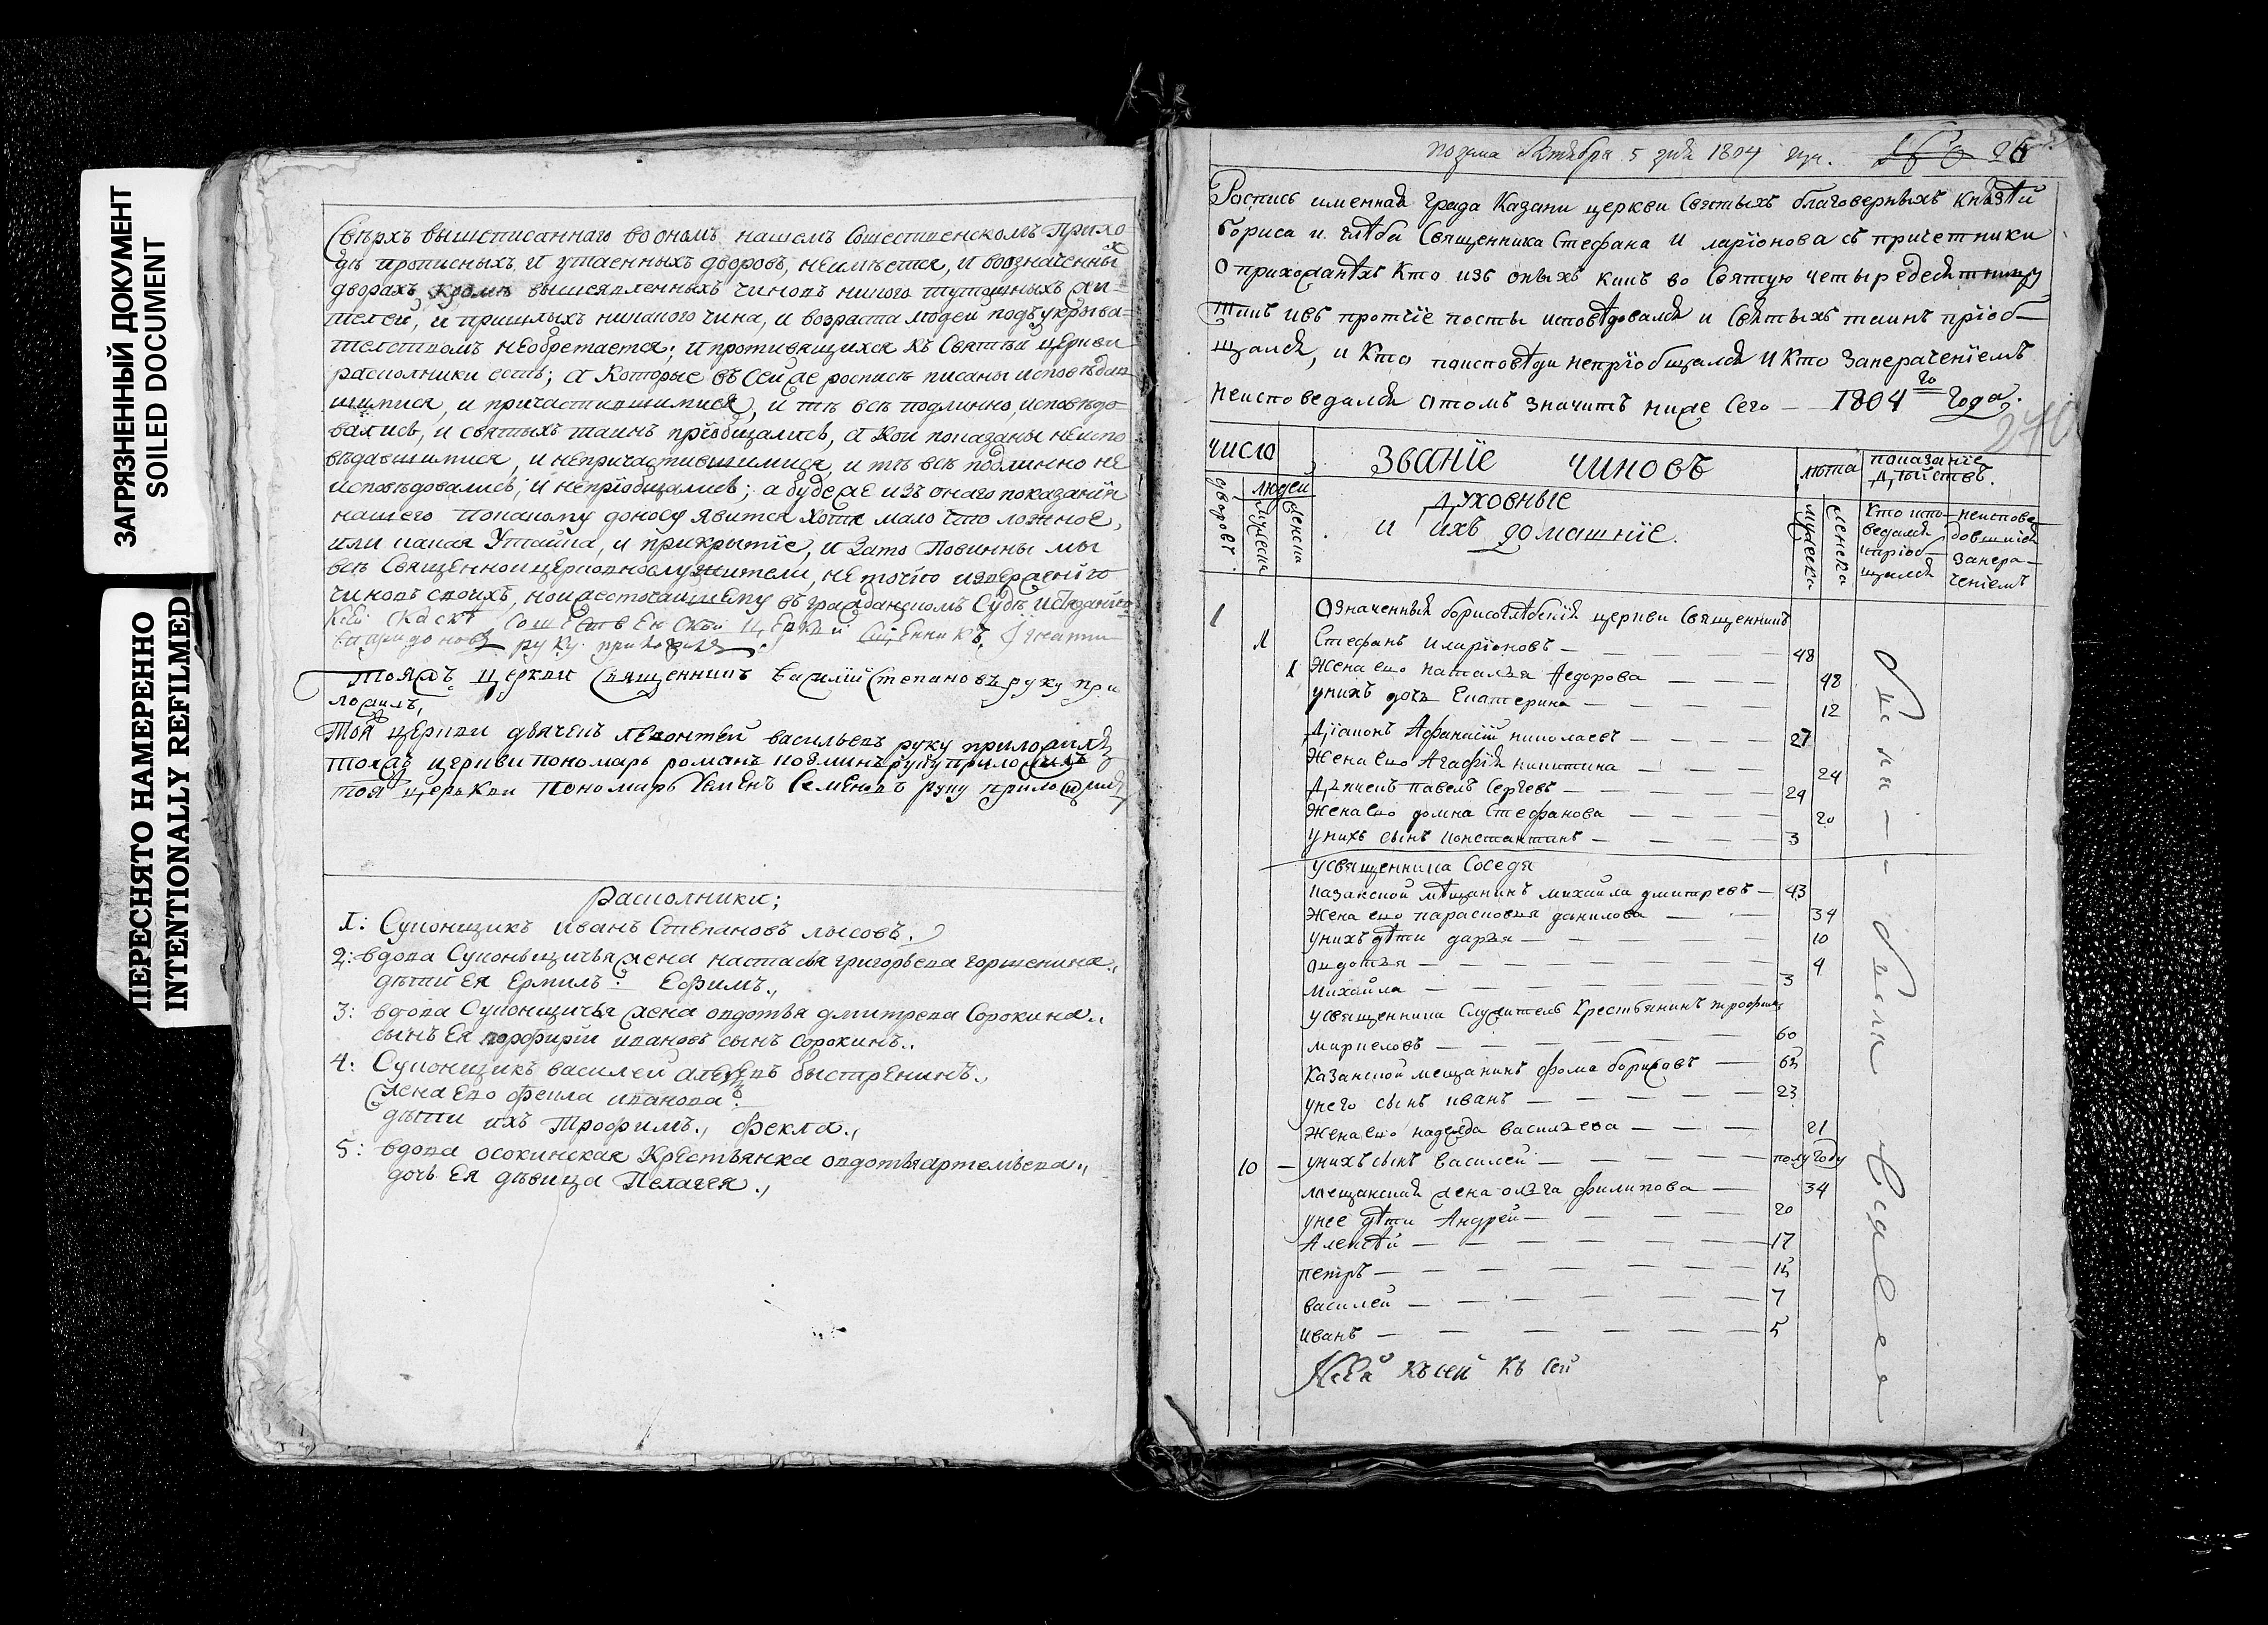 ЗАГРЯЗНЕННЫЙ ДОКУМЕНТ
SOILED DOCUMENT
ПЕРЕСНЯТО НАМЕРЕННО
INTENTIONALLY REFILMED
Сверхъ вышеписаннаго во ономъ нашемъ Сошественскомъ прихо
дѣ прописныхъ и утаенныхъ дворовъ, неимѣется, и возначенны
дворахъ, кромѣ вышеявленныхъ чиновъ никого тутошныхъ жи-
телей, и пришлыхъ никакого чина, и возраста людей подъ укрыва-
телствомъ необретается; и противящихся къ Святѣй церкви
расколники есть; а Которые въ Сей же росписѣ писаны исповѣдав
шимися, и причастившимися, и тѣ всѣ подлинно, исповѣдо
вались, и святыхъ таинъ прїобщались, а Кои показаны неиспо
вѣдавшимися, и непричастившимися, и тѣ всѣ подлинно не
исповѣдовались, и непрїобщались; а буде же изъ онаго показанїи
нашего покакому доносу явится хотя мало что ложное,
или какая Утайка, и прикрытїе, и Зато Повинны мы
всѣ Священноицерковнослужители, не точїю изверженїю
чиновъ своихъ, ноижесточайшему въ гражданскомъ Судѣ истязанїю
Къ Сей Скаскѣ Сошественской Церкви Сщенникъ Игнати
Спиридоновъ руку приложилъ
тояжъ церкви священникъ Василїй Степановъ руку при
ложилъ,
Тояжъ церкви дьячекъ леонтей васильевъ руку приложилъ
тояжъ церкви пономарь романъ козминъ руку приложилъ
тояжъ церькви Пономарь Семенъ Семеновъ руку приложилъ
Расколники;
1: Суконщикъ иванъ Степановъ лысовъ.
2: вдова Суконьщичья жена настасья григорьева горшенина.,
дѣти Ея Ермилъ: Ефимъ.,
3: вдова Суконщичья жена овдотья дмитрева Сорокина.,
сынъ Ея порфирїй ивановъ сынъ Сорокинъ.,
4: Суконщикъ василей алеѯѣевъ быстренинъ.,
жена Ево фекла иванова.
дѣти ихъ Трофимъ., Фекла.,
5: вдова осокинская Крестьянка овдотья артемьева.,
дочь Ея дѣвица Пелагея.,
октября 5 дня 1804 года. 26
Роспись именная града Казани церкви Святыхъ благоверныхъ князѣй
бориса и глѣба Священника Стефана Иларїонова съ причетники
о прихожанѣхъ Кто изъ оныхъ какъ во Святую четыредесятницу
такъ ивъ протчїе посты исповѣдовался и Святыхъ таинъ прїоб-
щался, и Кто поисповѣди непрїобщался И Кто Занерачениемъ
неисповедался отомъ значитъ ниже Сего - 1804 го Года.
270
число
дворовъ.
людей
мужеска
женска
Званїе чиновъ
Духовные
и ихъ домашнїе.
лѣта
мужска
женска
показанїе
дѣйствъ.
Кто испо-
ведался
ипрїоб-
щался
неиспове
довшийся
Занера-
ченїемъ
1 Означенныя борисоглѣбскїя церкви Священникъ
1 Стефанъ иларїоновъ — 48
1 Жена ево наталья Федорова — 48
унихъ дочь Екатерина — 12
Дїаконъ Афанасїй николаевъ — 27
Жена ево Агафїя никитина — 24
Дьячекъ павелъ Сергеевъ — 29
Жена ево домна Стефанова — 20
унихъ сынъ константинъ — 3
усвященника Соседи
казанской мѣщанинъ михайла дмитревъ — 43
Жена ево парасковья данилова — 34
унихъ дѣти дарья — 10
овдотья — 9
михайла — 3
усвященника Служитель Крестьянинъ трофимъ
— 60
Казанской мещанинъ фома борисовъ — 65
унего сынъ иванъ — 23
Жена ево надежда васильева — 21
10 — унихъ сынъ василей — полугоду
мещанская жена ольга филипова — 34
унее дѣти Андрей — 20
Алексѣй — 17
петръ — 15
василей — 7
иванъ — 5
Къ сей Къ Сей